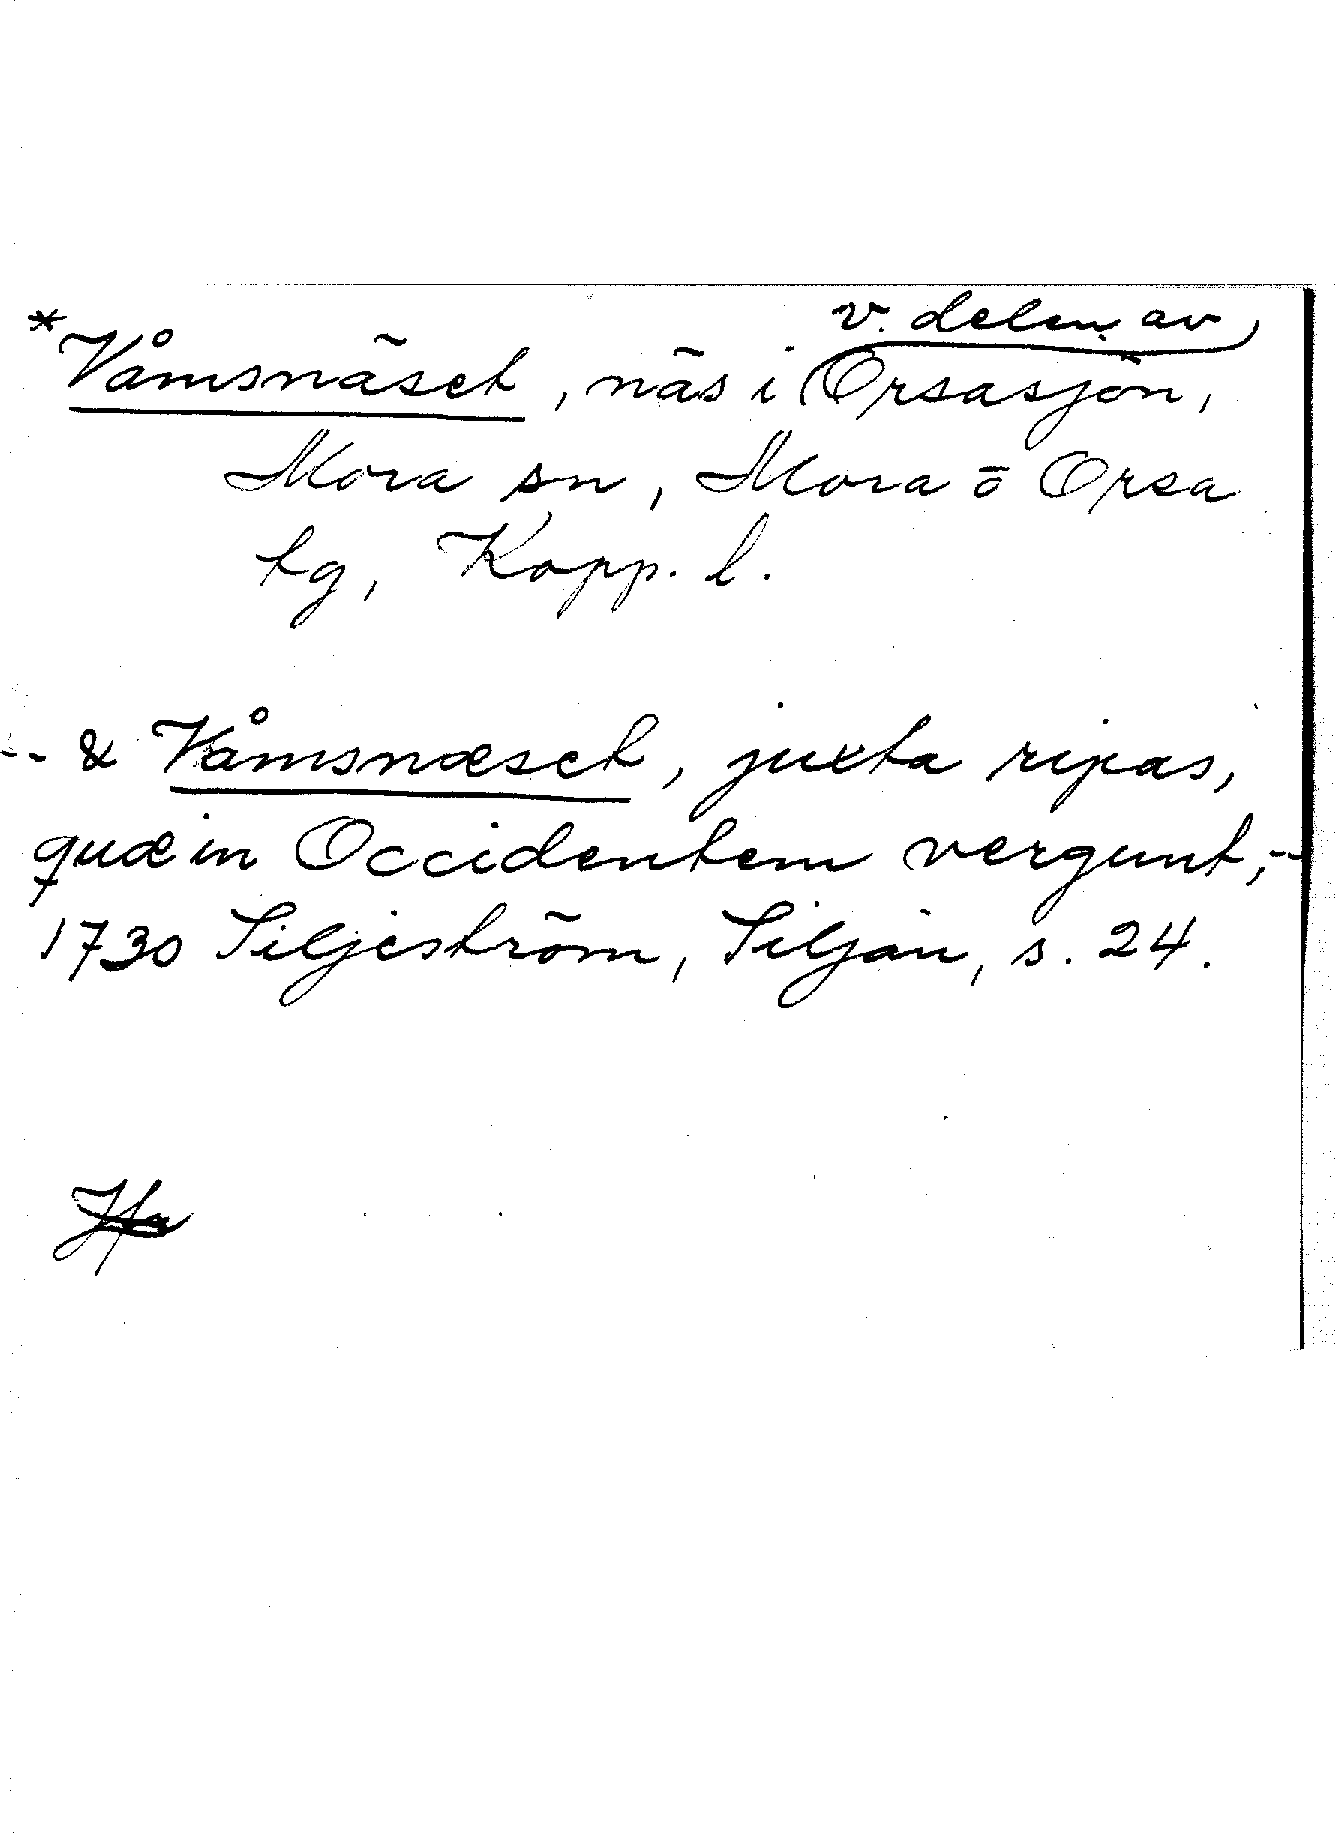 *Våmsnäset, näs i v. delen av Orsasjön,
Mora sn, Mora o Orsa
tg, Kopp. l.
-- & Våmsnæset, juxta ripas,
quæ in Occidentem vergunt, --
1730 Siljeström, Siljan, s. 24.